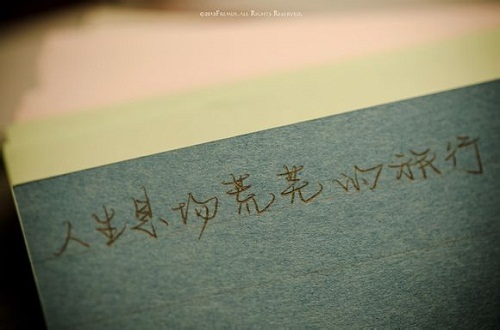 ©2013FREMEN. ALL RIGHTS RESERVED.
人生是场荒芜的旅行